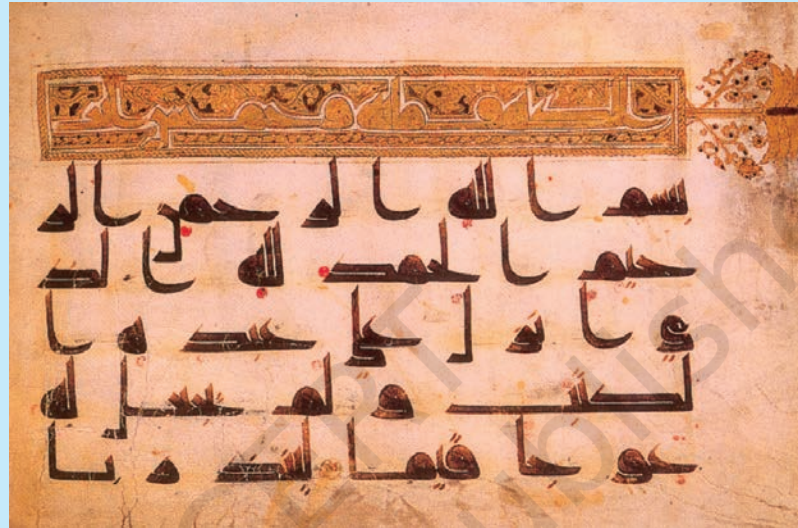 بسم الله الرحمن الر
حيم الحمد لله الذ
ي انزل على عبده ا
لكتب ولم يجعل له
عوجا قيما لينذر با
CERT
publishe